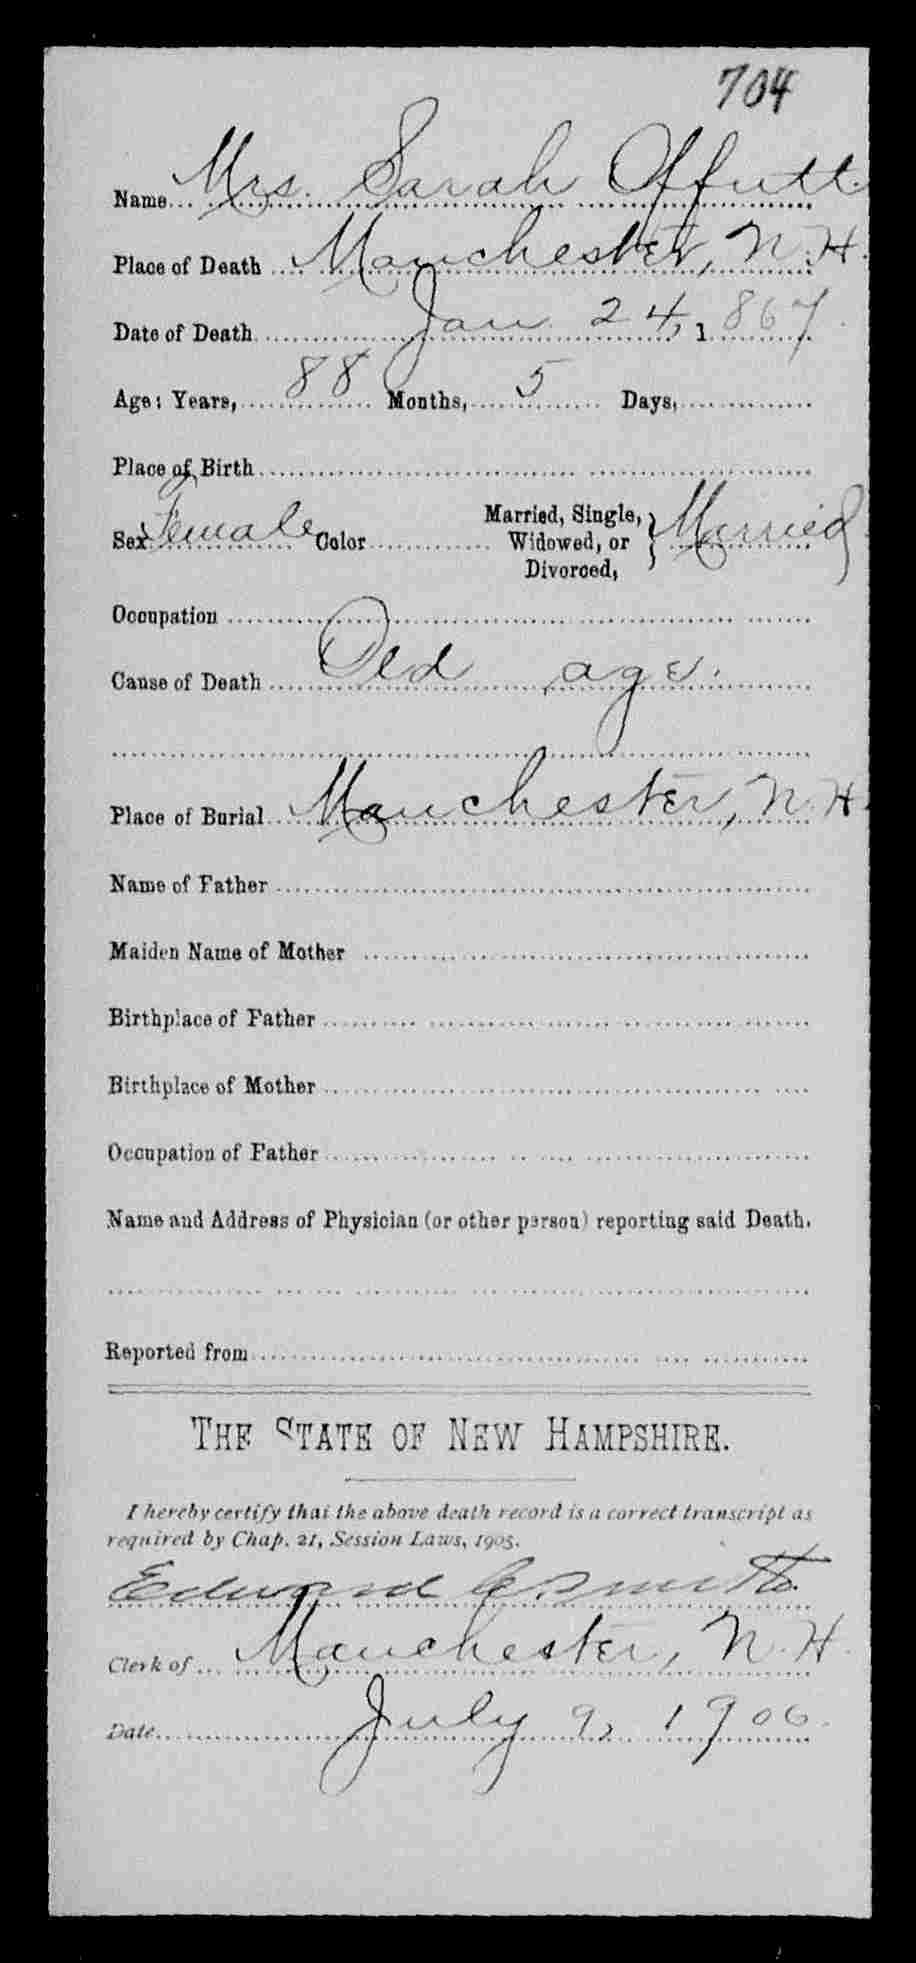 704
Name Mrs. Sarah Offutt.
Place of Death Manchester, N.H.
Date of Death Jan 24, 1867.
Age: Years, 88 Months, 5 Days,
Place of Birth
Sex Female Color Married, Single, Widowed, or Divorced, } Married
Occupation
Cause of Death Old age.
Place of Burial Manchester, N.H.
Name of Father
Maiden Name of Mother
Birthplace of Father
Birthplace of Mother
Occupation of Father
Name and Address of Physician (or other person) reporting said Death.
Reported from
THE STATE OF NEW HAMPSHIRE.
I hereby certify that the above death record is a correct transcript as
required by Chap. 21, Session Laws, 1905.
Edward C Smith
Clerk of Manchester, N.H.
Date July 9, 1906.